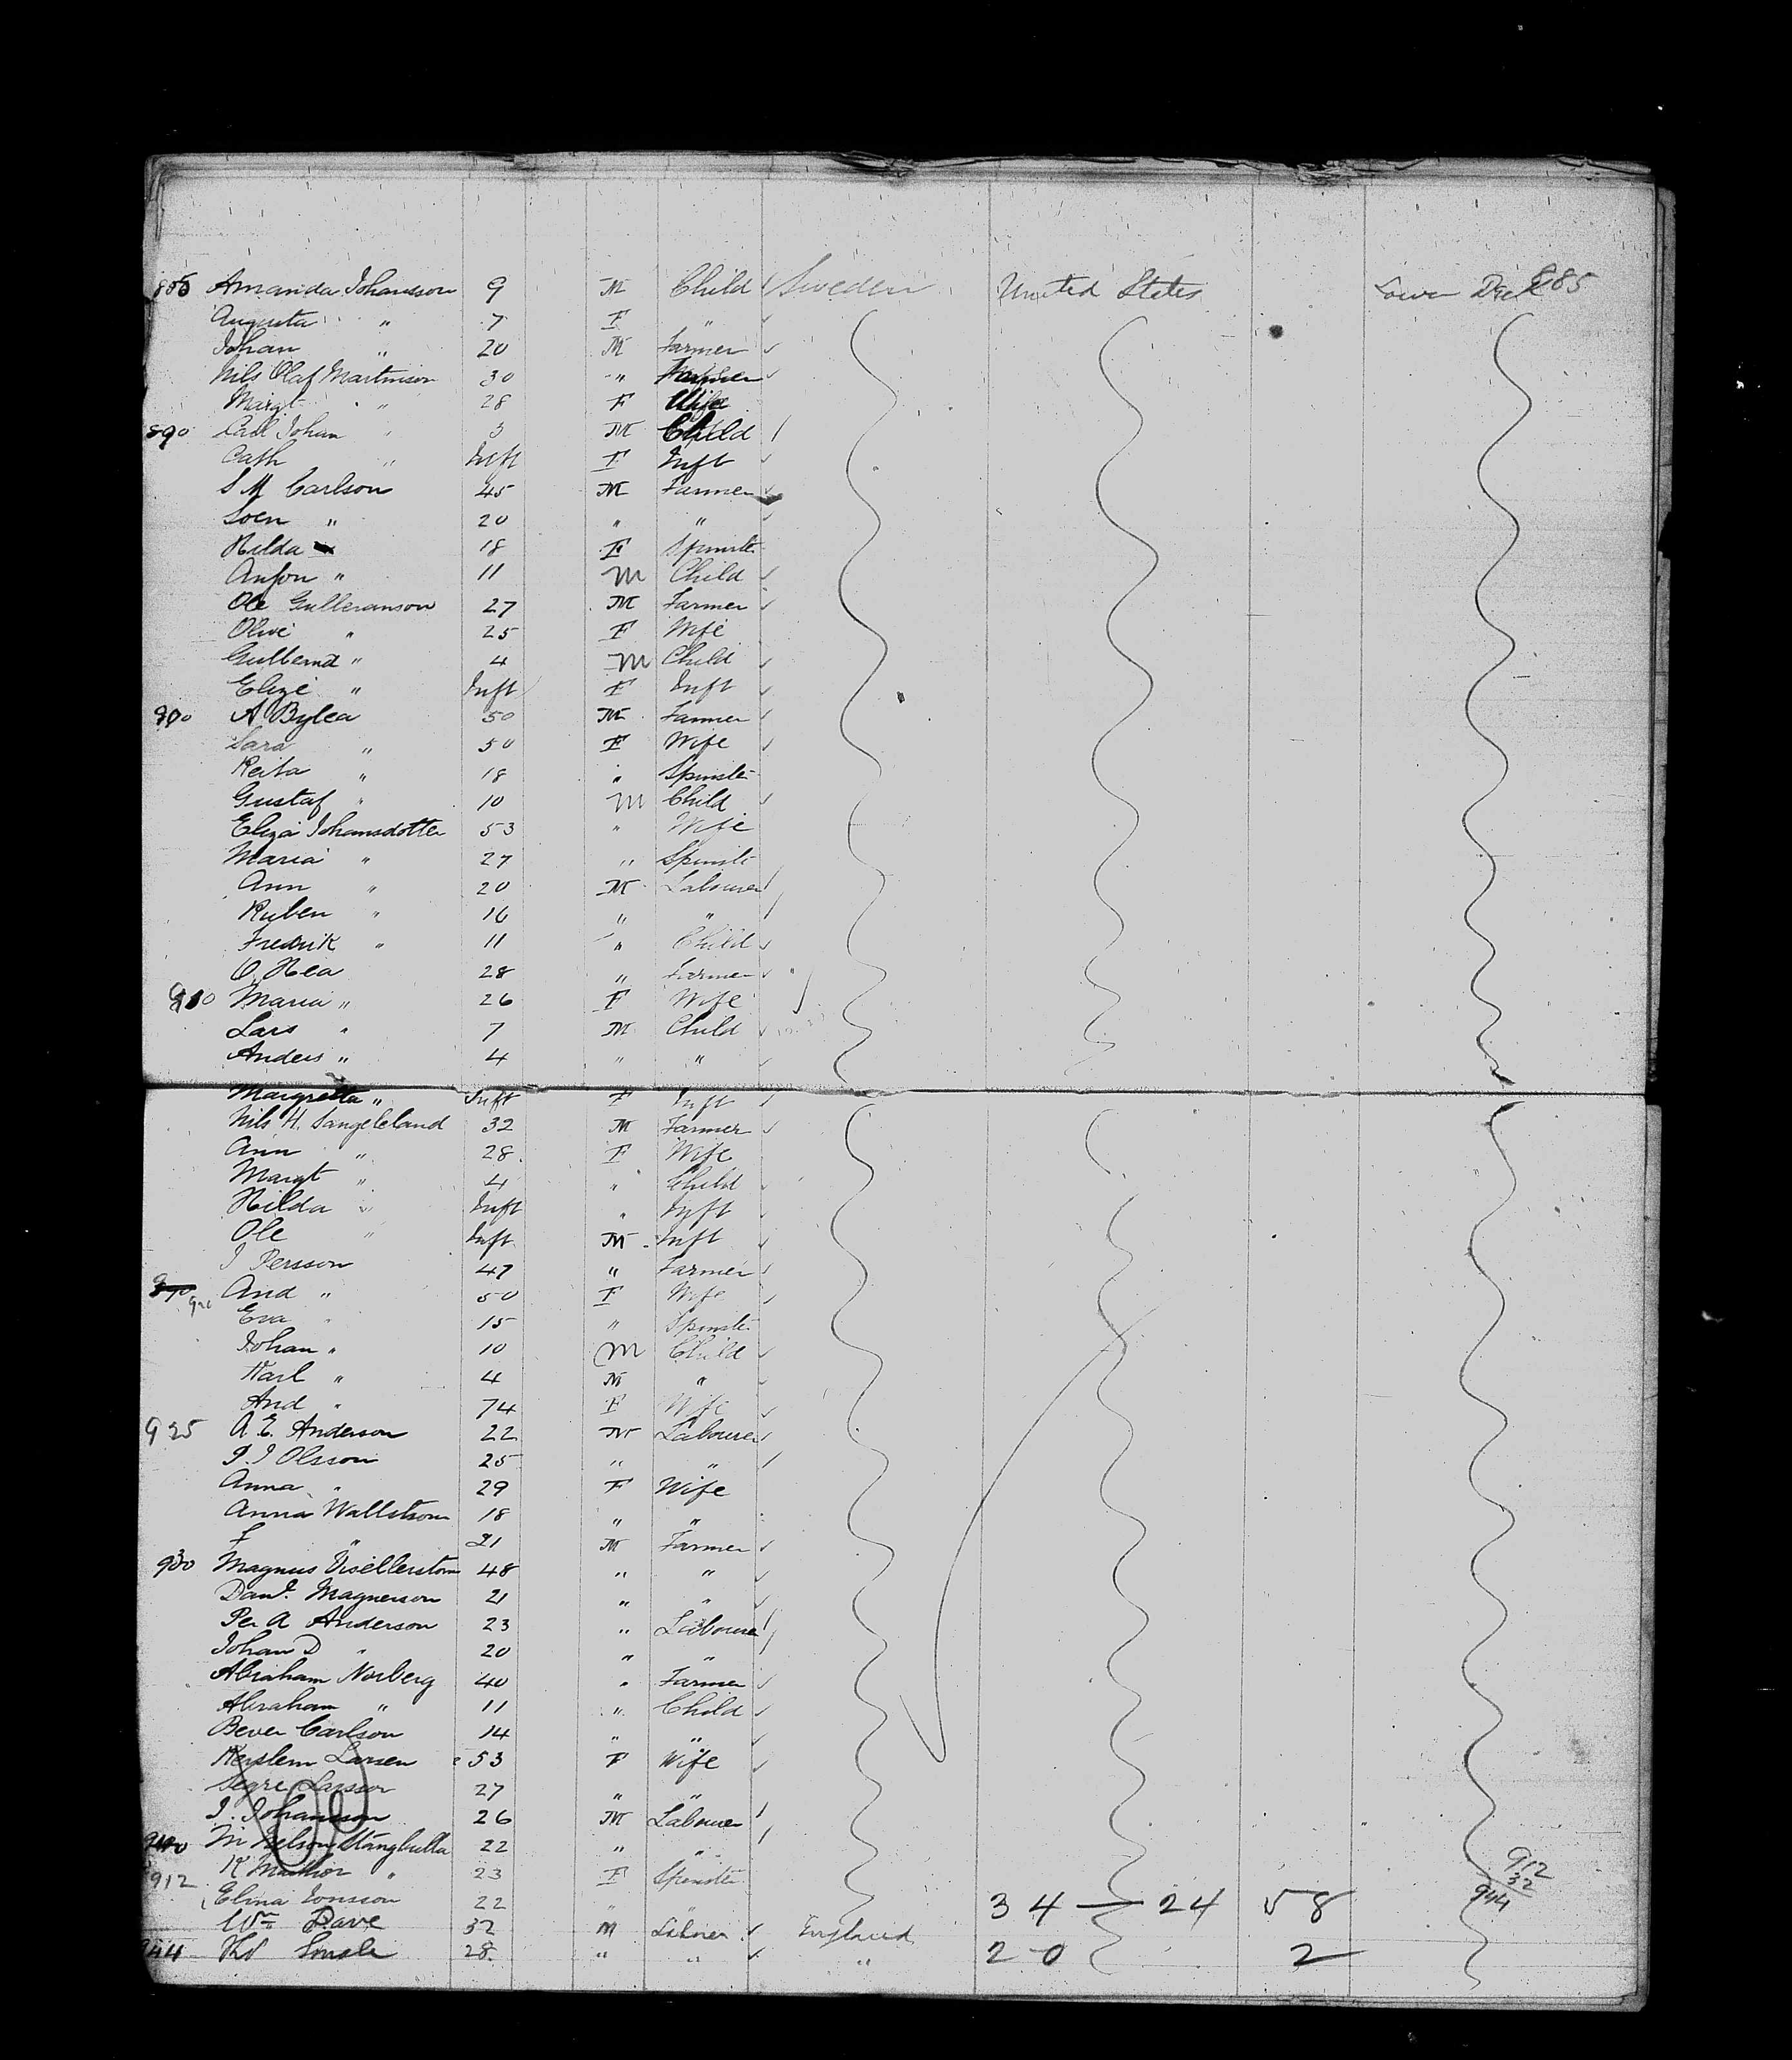 885 Amanda Johansson 9 M Child Sweden United States Lower Deck 885
Augusta " 7 F "
Johan " 20 M Farmer
Nils Olaf Martinson 30 " Farmer
Margt " 28 F Wife
890 Carl Johan " 3 M Child
Cath " Inft F Inft
S M Carlson 45 M Farmer
Soen " 20 " "
Hilda 18 F Spinster
Anfon " 11 M Child
Ole Gulleranson 27 M Farmer
Olive " 25 F Wife
Gulbernd " 4 M Child
Elize " Inft F Inft
900 A Bylea 50 M Farmer
Sara " 50 F Wife
Reita " 18 " Spinster
Gustaf " 10 M Child
Eliza Johansdotter 53 " Wife
Maria " 27 " Spinster
Ann " 20 M Labourer
Ruben " 16 " "
Fredrik " 11 " Child
O. Hea 28 " Farmer
910 Maria " 26 F Wife
Lars " 7 M Child
Anders " 4 " "
Margretta " Inft F Inft
Nils H. Sangeleland 32 M Farmer
Ann " 28 F Wife
Margt " 4 " Child
Hilda " Inft " Inft
Ole " Inft M Inft
J Persson 47 " Farmer
920 And " 50 F Wife
Eva " 15 " Spinster
Johan " 10 M Child
Karl " 4 M "
And " 74 F Wife
925 A. E. Anderson 22 M Labourer
P. J Olsson 25 " "
Anna " 29 F Wife
Anna Wallstrom 18 " "
F " 21 M Farmer
930 Magnus 48 " "
Danl. Magnerson 21 " "
Per A Anderson 23 " Labourer
Johan D " 20 " "
Abraham Norberg 40 " Farmer
Abraham " 11 " Child
Bever Carlson 14 " "
Larsen 53 F Wife
Larsson 27 " "
J. Johansson 26 M Labourer
940 M Nelson 22 " "
912 K " 23 F Spinster
Elina Jonsson 22 " " 34 — 24 58
912
32
944
Wm Dave 32 M Laborer England
944 28 " " " 20 2